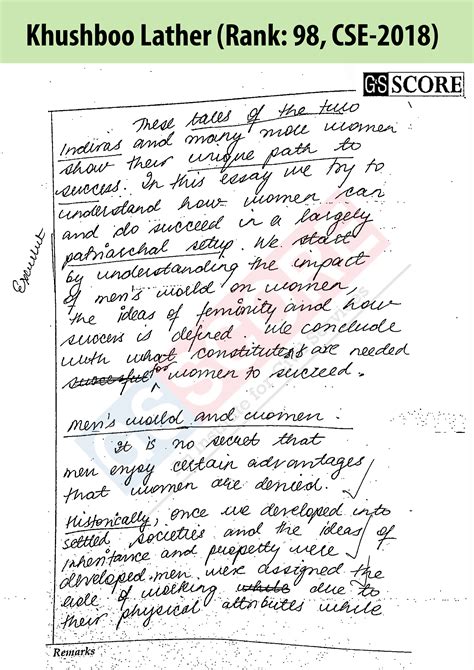 Khushboo Lather (Rank: 98, CSE-2018)
GS SCORE
These tales of the two
Indiras and many more women
show their unique path to
success. In this essay we try to
understand how women can
and do succeed in a largely
patriarchal setup. We start
by understanding the impact
of men's world on women
the ideas of feminity and how
success is defined. We conclude
with what constitutents are needed
successful for women to succeed.
Excellent
Men's world and women:
It is no secret that
men enjoy certain advantages
that women are denied.
Historically, once we developed into
settled societies and the ideas of
inheritance and property were
developed, men were assigned the
role of working while due to
their physical attributes while
Remarks